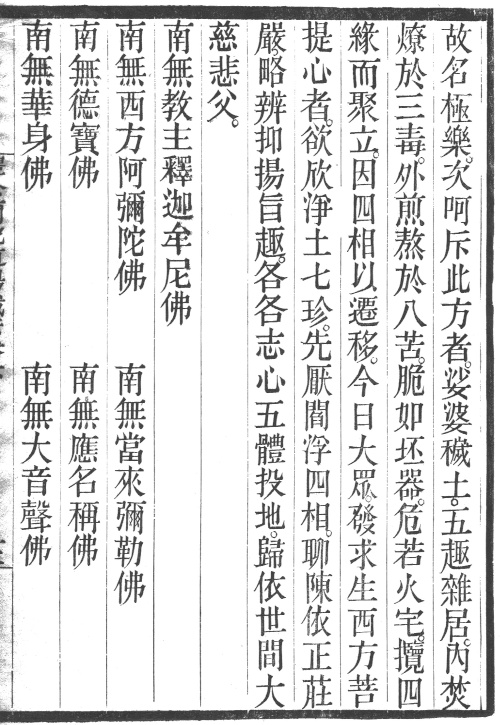 故名極樂。次呵斥此方者。娑婆穢土。五趣雜居。內焚
燎於三毒。外煎熬於八苦。脆如坯器。危若火宅。攬四
緣而聚立。因四相以遷移。今日大眾。發求生西方菩
提心者。欲欣淨土七珍。先厭閻浮四相。聊陳依正莊
嚴。略辨抑揚旨趣。各各志心五體投地。歸依世間大
慈悲父。
南無教主釋迦牟尼佛
南無西方阿彌陀佛　南無當來彌勒佛
南無德寶佛　南無應名稱佛
南無華身佛　南無大音聲佛